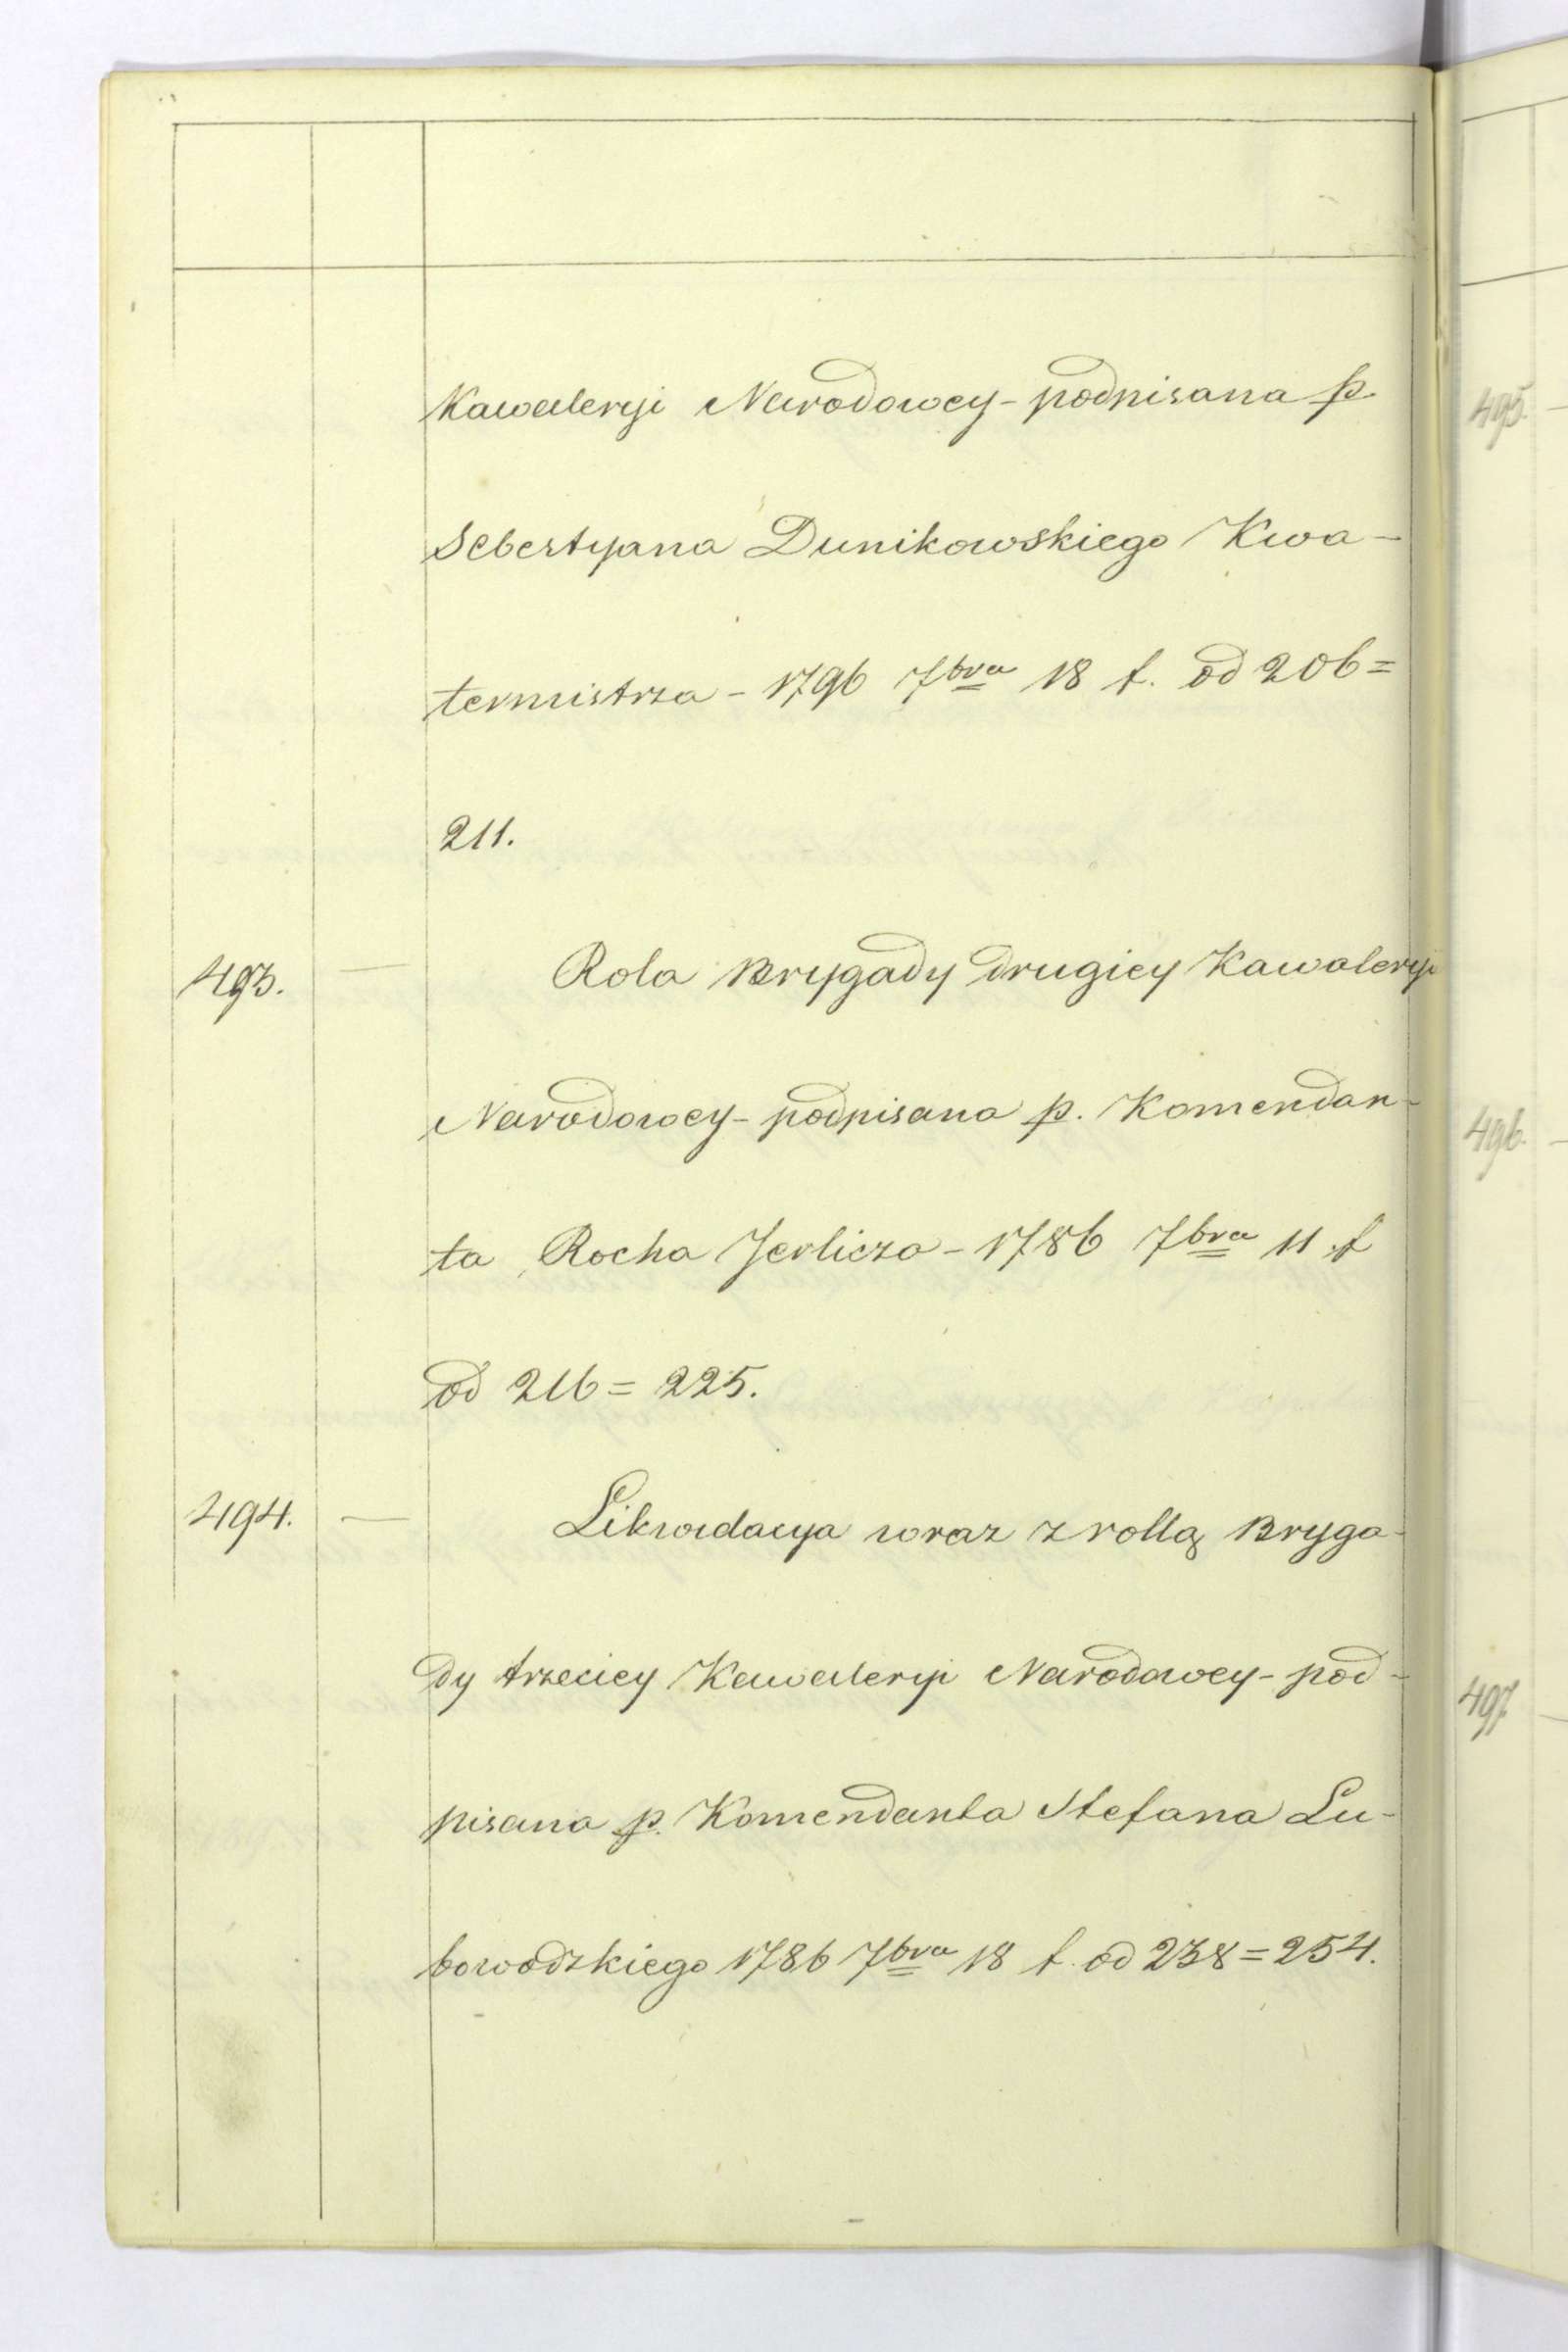 Kawaleryi Narodowey - podpisana p.
Sebestyana Dunikowskiego Kwa-
termistrza - 1796 7bra 18 f. od 206 =
211.
493. — Rola Brygady drugiey Kawaleryi
Narodowey - podpisana p. Komendan-
ta Rocha Jerlicza - 1786 7bra 11 f
od 216 = 225.
494. — Likwidacya wraz z rollą Bryga-
dy trzeciey Kawaleryi Narodowey - pod-
pisana p. Komendanta Stefana Lu-
bowodzkiego 1786 7bra 18 f. od 238 = 254.
495. —
496. —
497 —